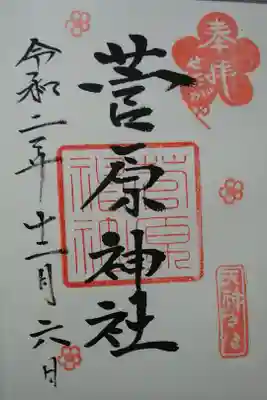 奉拝
せたがや
菅原神社
菅原神社
天神さま
令和二年十二月六日